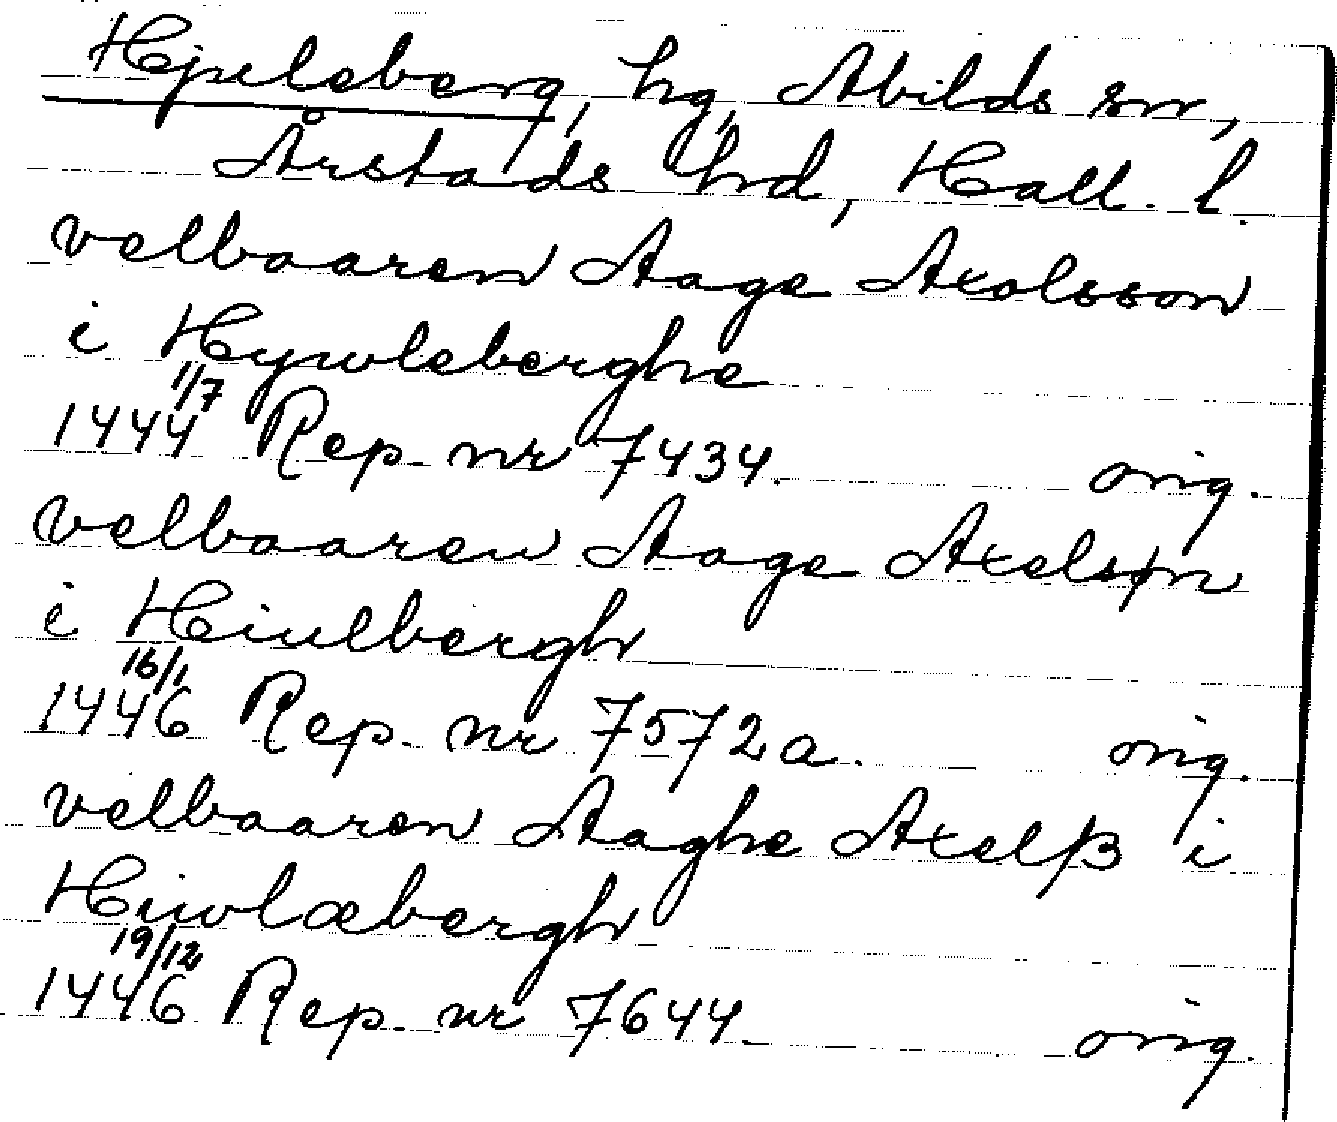 Hjuleberg, hg, Abilds sn,
Årstads hd, Hall. l.
velbaaren Aage Axelsson
i Hywleberghe
1444 1/7 Rep. nr 7434. orig.
velbaaren Aage Axelsøn
i Hiulbergh
1446 16/1 Rep. nr 7572a. orig.
velbaaren Aaghe Axelß i
Hiwlæbergh
1446 19/12 Rep. nr 7644. orig.